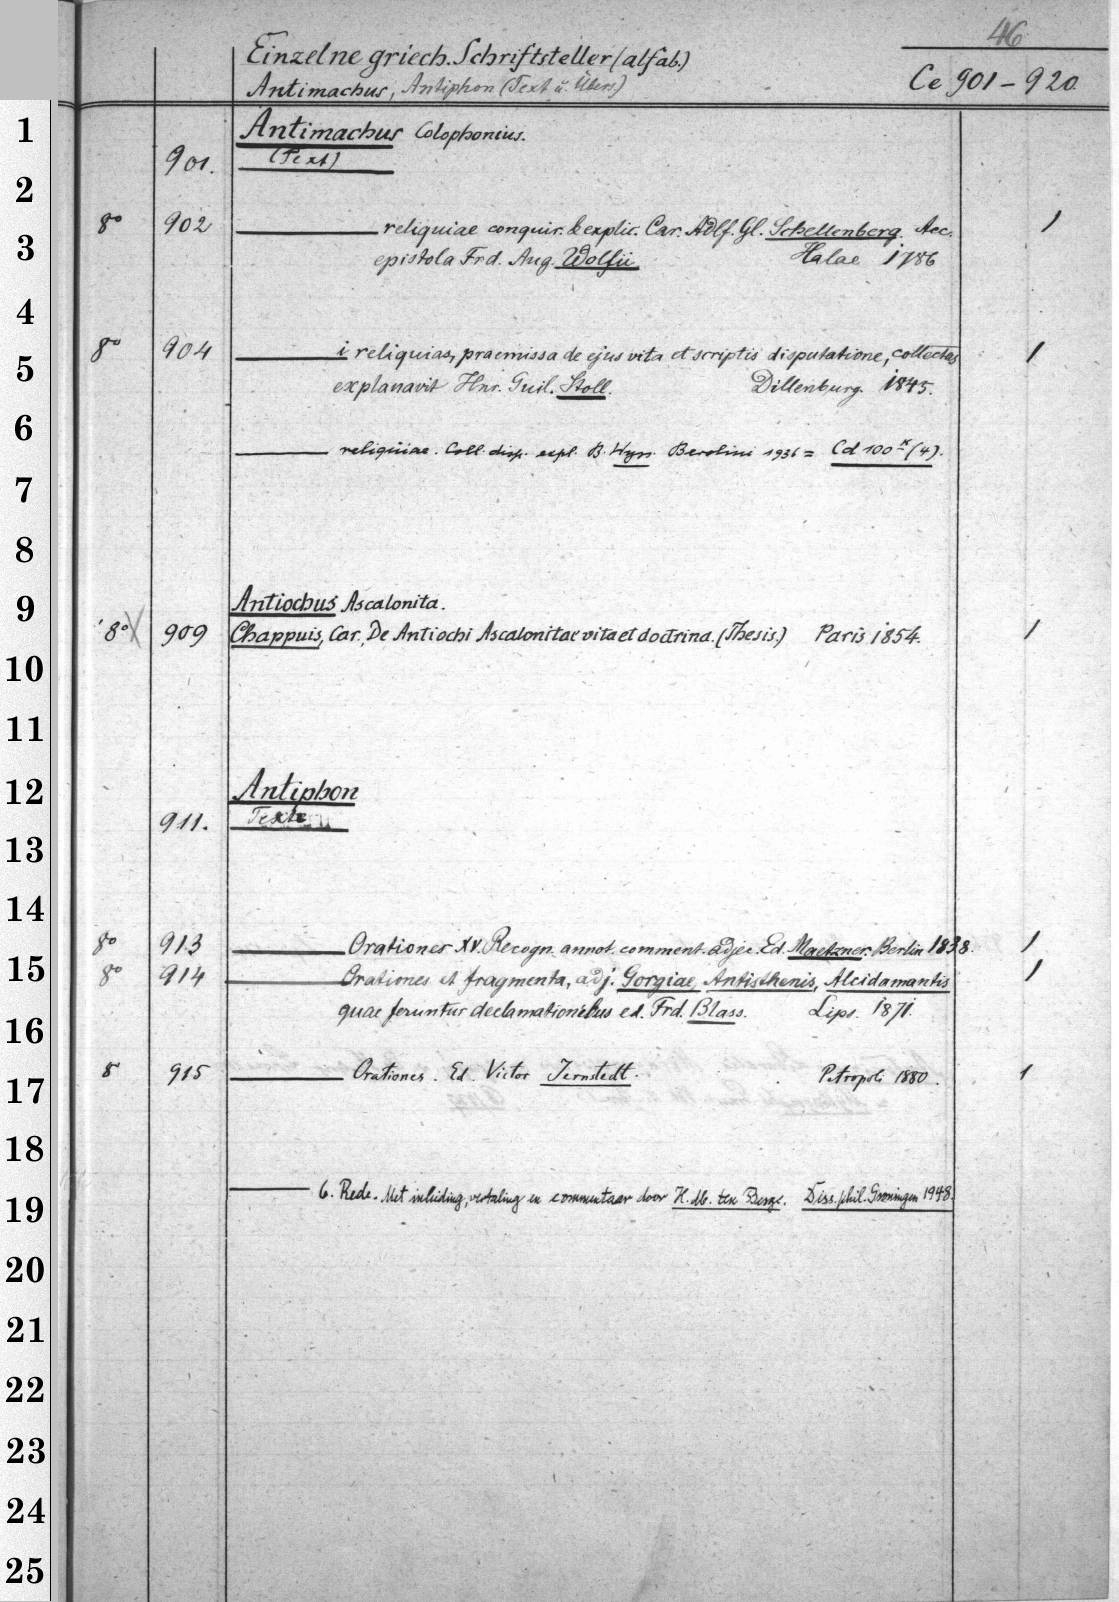 46
Einzelne griech. Schriftsteller (alfab.)
Antimachus, Antiphon (Text u. Übers.)
Ce 901 - 920.
1
Antimachus Colophonius.
901. (Text)
2
8° 902 ——— reliquiae conquir. & explic. Car. Adf. Gl. Schellenberg. Acc. 1
3
epistola Frd. Aug. Wolfii Halae 1786
4
8° 904 ——— i reliquias, praemissa de ejus vita et scriptis disputatione, collectas 1
5
explanavit Hnr. Guil. Stoll. Dillenburg. 1845.
6
——— reliquiae. Coll. disp. expl. B. Wyss. Berolini 1936 = Cd 100 x (4).
7
8
9
Antiochus Ascalonita.
8° 909 Chappuis, Car., De Antiochi Ascalonitae vita et doctrina. (Thesis.) Paris 1854. 1
10
11
12
Antiphon
911. Text
13
14
8° 913 ——— Orationes XV. Recogn. annot. comment. adjec. Ed. Maetzner. Berlin 1838. 1
15
8° 914 ——— Orationes et fragmenta, adj. Gorgiae, Antisthenis, Alcidamantis 1
quae feruntur declamationibus ed. Frd. Blass. Lips. 1871.
16
8 915 ——— Orationes. Ed. Victor Jernstedt. Petropoli 1880. 1
17
18
——— 6. Rede. Met inleiding, vertaling en commentaar door H. M. ten Berge. Diss. phil. Groningen 1948.
19
20
21
22
23
24
25